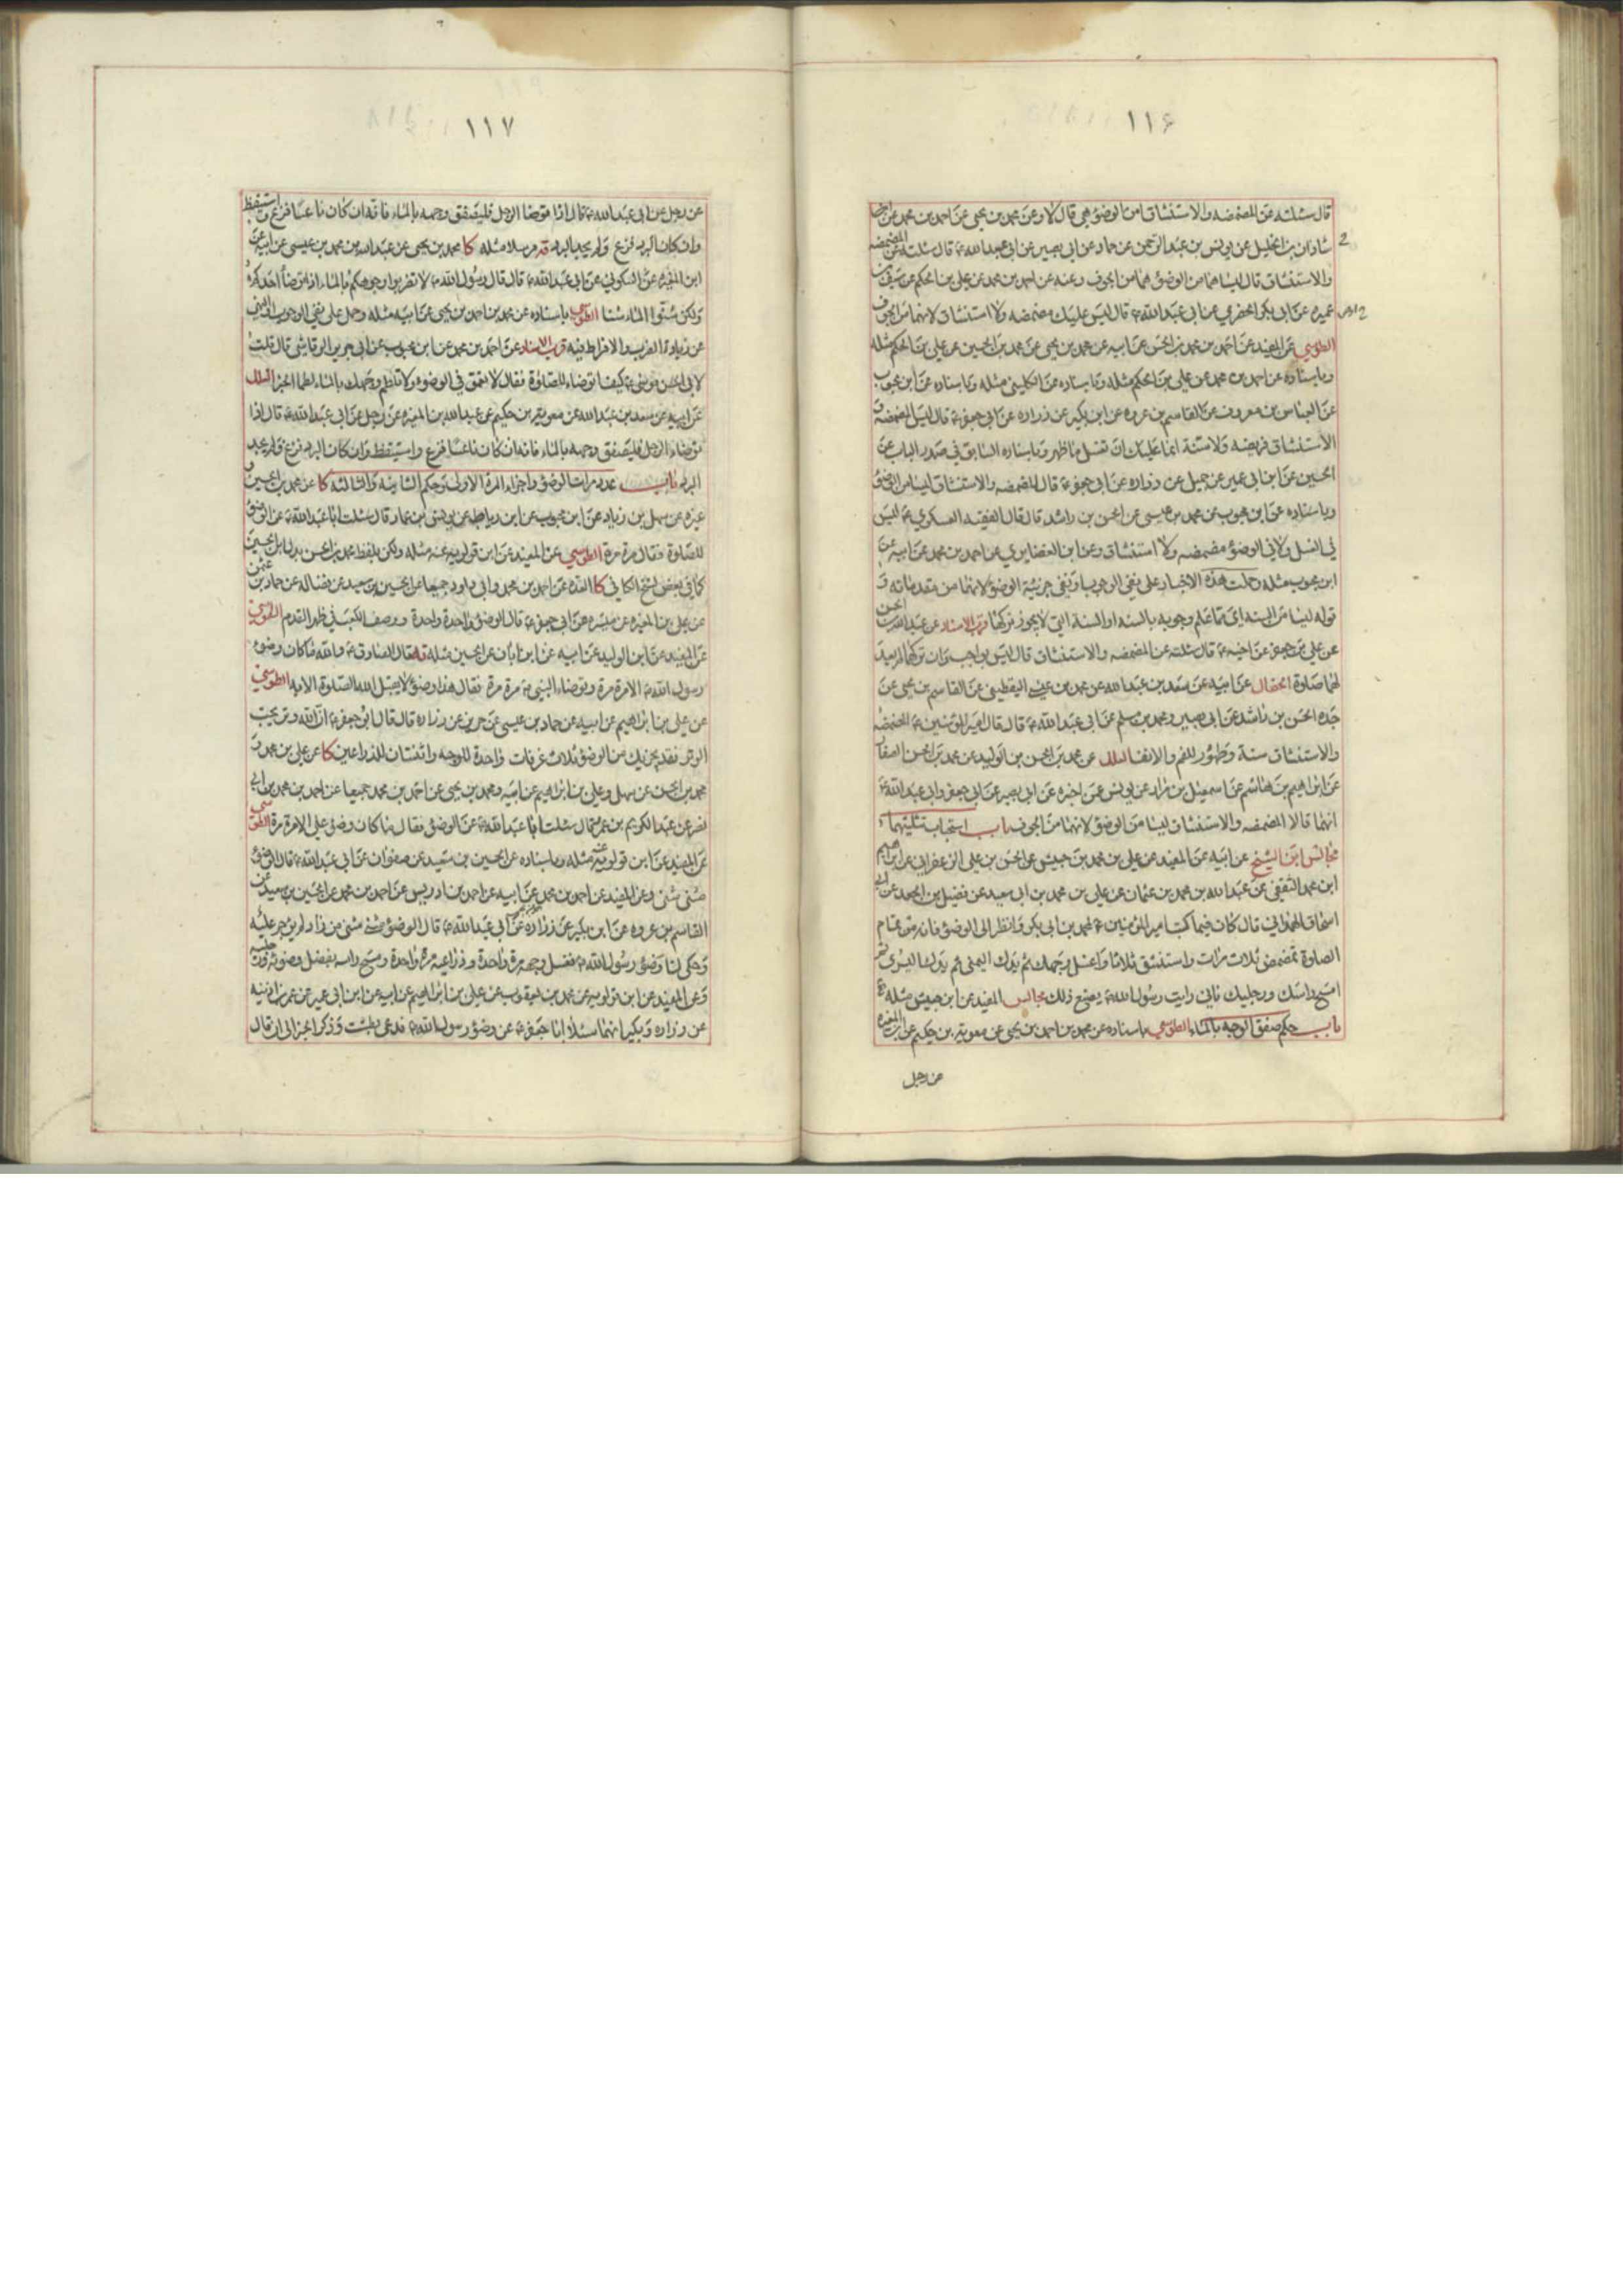 ١١۶
قال سئلته عن المضمضه والاستنشاق امن الوضوء هي قال لا وعن محمد بن يحيى عن احمد بن محمد عن
شاذان بن الخليل عن يونس بن عبد الرحمن عن حماد عن ابي بصير عن ابي عبد الله ع قال سئلته عن المضمضه
والاستنشاق قال ليسا هما من الوضوء هما من الجوف وعنه عن احمد بن محمد عن علي بن الحكم عن سيف بن
عميره عن ابي بكر الحضرمي عن ابي عبد الله ع قال ليس عليك مضمضه ولا استنشاق لانهما من الجوف
الطوسي عن المفيد عن احمد بن محمد بن الحسن عن ابيه عن محمد بن يحيى عن محمد بن الحسين عن علي بن الحكم مثله
وباسناده عن احمد بن محمد عن علي بن الحكم مثله وباسناده عن الكليني مثله وباسناده عن ابن محبوب
عن العباس بن معروف عن القاسم بن عروه عن ابن بكير عن زراره عن ابي جعفر ع قال ليس المضمضه و
الاستنشاق فريضه ولا سنة انما عليك ان تغسل ما ظهر وباسناده السابق في صدر الباب عن
الحسين عن ابن ابي عمير عن جميل عن زراره عن ابي جعفر ع قال المضمضه والاستنشاق ليسا من الوضوء
وباسناده عن ابن محبوب عن محمد بن عيسى عن الحسن بن راشد قال قال الفقيه العسكري ع ليس
في الغسل ولا في الوضوء مضمضه ولا استنشاق وعن ابن الغضايري عن احمد بن محمد عن ابيه عن
ابن محبوب مثله وحملت هذه الاخبار على نفي الوجوب او نفي جزئية الوضوء لانهما من مقدماته و
قوله ليسا من السنه اي مما علم وجوبه بالسنه او السنة التي لا يجوز تركها قرب الاسناد عن عبد الله بن الحسن
عن علي بن جعفر عن اخيه ع قال سئلته عن المضمضه والاستنشاق قال ليس بواجب وان تركهما لم يعد
لهما صلوة الخصال عن ابيه عن سعد بن عبد الله عن محمد بن عيسى اليقطيني عن القاسم بن يحيى عن
جده الحسن بن راشد عن ابي بصير ومحمد بن مسلم عن ابي عبد الله ع قال قال امير المؤمنين ع المضمضه
والاستنشاق سنة وطهور للفم والانف العلل عن محمد بن الحسن بن الوليد عن محمد بن الحسن الصفار
عن ابراهيم بن هاشم عن اسمعيل بن مرار عن يونس عمن اخبره عن ابي بصير عن ابي جعفر وابي عبد الله ع
انهما قالا المضمضه والاستنشاق ليسا من الوضوء لانهما من الجوف باب استحباب تثليثهما
مجالس ابن الشيخ عن ابيه عن المفيد عن علي بن محمد بن حبيش عن الحسن بن علي الزعفراني عن ابراهيم
ابن محمد الثقفي عن عبد الله بن محمد بن عثمان عن علي بن محمد بن ابي سعيد عن فضيل بن الجعد عن ابي
اسحاق الهمداني قال كان فيما كتب امير المؤمنين ع لمحمد بن ابي بكر وانظر الى الوضوء فانه من تمام
الصلوة تمضمض ثلاث مرات واستنشق ثلاثا واغسل وجهك ثم يدك اليمنى ثم يدك اليسرى ثم
امسح راسك ورجليك فاني رايت رسول الله ص يصنع ذلك مجالس المفيد عن ابن حبيش مثله
باب حكم صفق الوجه بالماء الطوسي باسناده عن محمد بن احمد بن يحيى عن معوية بن حكيم عن ابن المغيره
عن رجل
١١٧
عن رجل عن ابي عبد الله ع قال اذا توضا الرجل فليصفق وجهه بالماء فانه ان كان ناعسا فزع واستيقظ
وان كان البرد فزع ولم يجد البرد قه مرسلا مثله كا محمد بن يحيى عن عبد الله بن محمد بن عيسى عن ابيه عن
ابن المغيره عن السكوني عن ابي عبد الله ع قال قال رسول الله ص لا تضربوا وجوهكم بالماء اذا توضأ احدكم
ولكن شنوا الماء شنا الطوسي باسناده عن محمد بن احمد بن يحيى عن ابيه مثله وحمل على نفي الوجوب
عن زيادة الضرب والافراط فيه قرب الاسناد عن احمد بن محمد عن ابن محبوب عن ابي جرير الرقاشي قال قلت
لابي الحسن موسى ع كيف اتوضاء للصلوة فقال لا تعمق في الوضوء ولا تلطم وجهك بالماء لطما الخبر العلل
عن ابيه عن سعد بن عبد الله عن معوية بن حكيم عن عبد الله بن المغيره عن رجل عن ابي عبد الله ع قال اذا
توضاء الرجل فليصفق وجهه بالماء فانه ان كان ناعسا فزع واستيقظ وان كان البرد فزع ولم يجد
البرد باب عدد مرات الوضوء واجزاء المرة الاولى وحكم الثانيه والثالثه كا عن محمد بن الحسن و
غيره عن سهل بن زياد عن ابن محبوب عن ابن رباط عن يونس بن عمار قال سئلت ابا عبد الله ع عن الوضوء
للصلوة فقال مرة مرة الطوسي عن المفيد عن ابن قولويه عنه مثله ولكن بلفظ محمد بن الحسن بدل ابن الحسين
كما في بعض نسخ الكافي كا العده عن احمد بن محمد وابي داود جميعا عن الحسين بن سعيد عن فضاله عن حماد بن عثمن
عن علي بن المغيره عن ميسره عن ابي جعفر ع قال الوضوء واحدة واحدة ووصف الكعب في ظهر القدم الطوسي
عن المفيد عن ابن الوليد عن ابيه عن ابن ابان عن الحسين مثله قه قال الصادق ع والله ما كان وضوء
رسول الله ص الا مرة مرة وتوضاء النبي ص مرة مرة فقال هذا وضوء لا يقبل الله الصلوة الا به الطوسي
عن علي بن ابراهيم عن ابيه عن حماد بن عيسى عن حريز عن زراره قال قال ابو جعفر ع ان الله وتر يحب
الوتر فقد يجزيك من الوضوء ثلاث غرفات واحدة للوجه واثنتان للذراعين كا عن علي بن محمد و
محمد بن الحسن عن سهل وعلي بن ابراهيم عن ابيه ومحمد بن يحيى عن احمد بن محمد جميعا عن احمد بن محمد بن ابي
نصر عن عبد الكريم بن عمرو قال سئلت ابا عبد الله ع عن الوضوء فقال ما كان وضوء علي الا مرة مرة الطوسي
عن المفيد عن ابن قولويه عنه مثله وباسناده عن الحسين بن سعيد عن صفوان عن ابي عبد الله ع قال الوضوء
مثنى مثنى وعن المفيد عن احمد بن محمد عن ابيه عن احمد بن ادريس عن احمد بن محمد عن الحسين بن سعيد عن
القاسم بن عروه عن ابن بكير عن زراره عن ابي عبد الله ع قال الوضوء مثنى مثنى من زاد لم يوجر عليه
وحكى لنا وضوء رسول الله ص فغسل وجهه مرة واحدة وذراعيه مرة واحدة ومسح راسه بفضل وضوئه ورجليه
وعن المفيد عن ابن قولويه عن محمد بن يعقوب عن علي بن ابراهيم عن ابيه عن ابن ابي عمير عن عمر بن اذينه
عن زراره وبكير انهما سئلا ابا جعفر ع عن وضوء رسول الله ص فدعى بطست وذكر الخبر الى ان قال